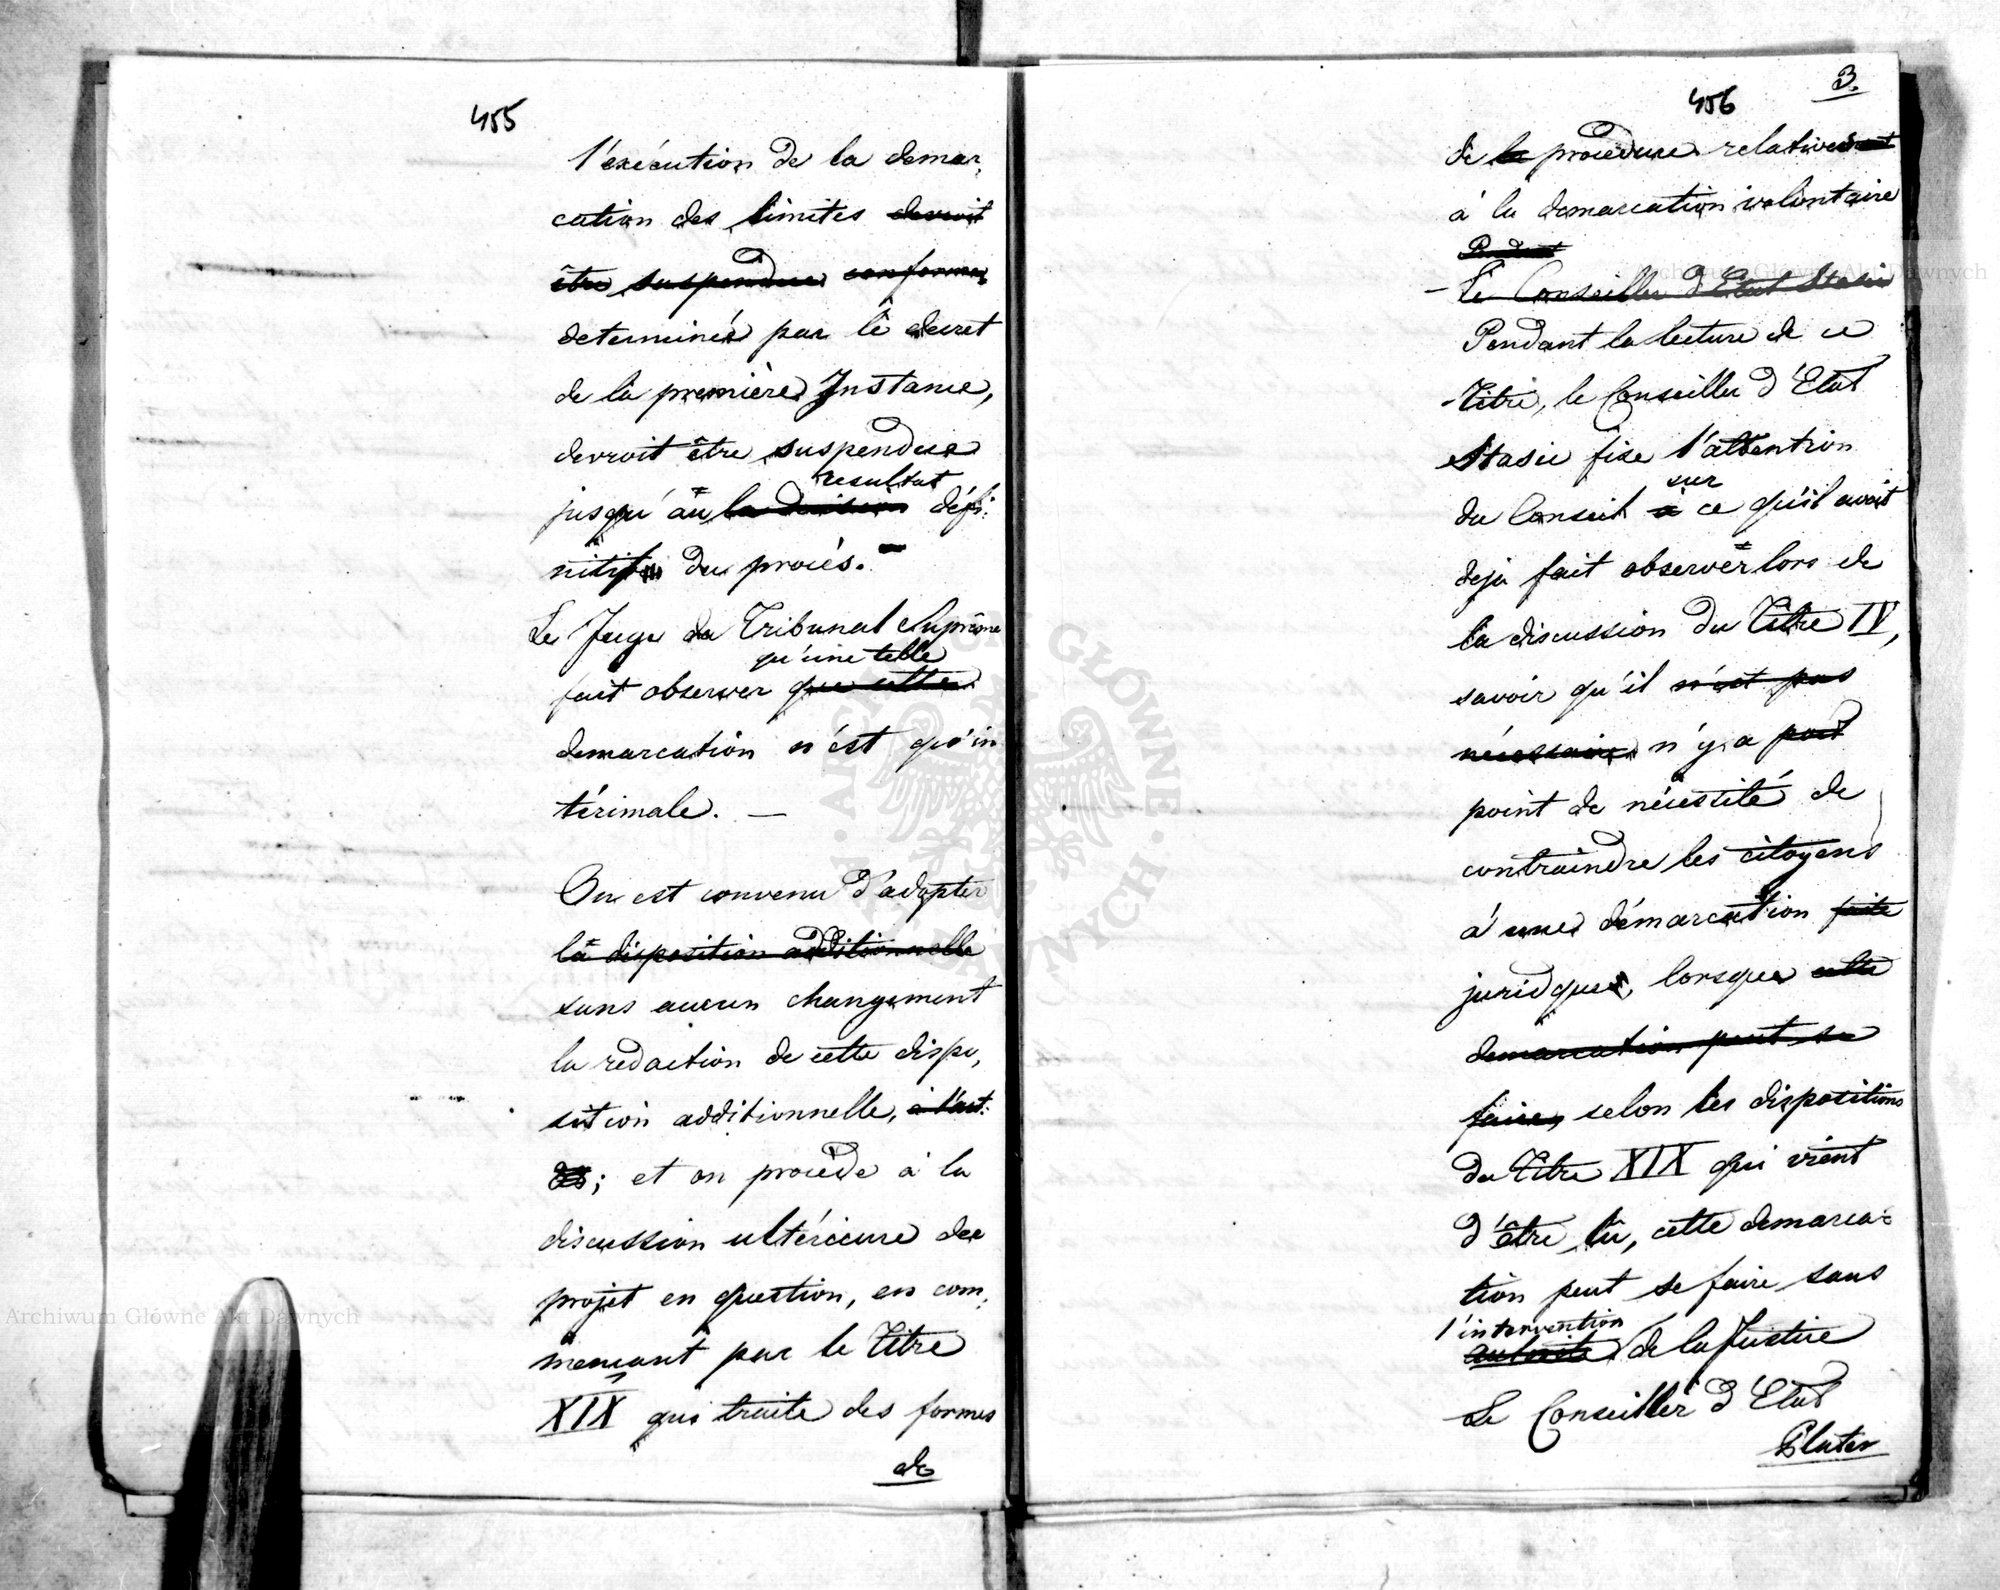 455
l'exécution de la demar,
cation des limites devroit
être suspendue conforme,
determinés par le decret
de la première Instance,
devroit être suspendue
resultat
jusqu'au la decision défi:
nitif du procés.
Le Juge du Tribunal Suprême
qu'une telle
fait observer que cette
demarcation n'est qu'in
térimale. —
On est convenu d'adopter
la disposition additionnelle
sans aucun changement
la redaction de cette dispo,
sition additionnelle, à l'art:
; et on procède à la
discussion ultérieure du
projet en question, en com,
mençant par le Titre
XIX qui traite des formes
de
3.
456
de la procedure relativement
à la demarcation volontaire
Pendant
– Le Conseiller d'Etat Stasic
Pendant la lecture de ce
Titre, le Conseiller d'Etat
Stasic fixe l'attention
sur
du Conseil à ce qu'il avoit
deja fait observer lors de
la discussion du Titre IV,
savoir qu'il n'est pas
nécessaire n'y a point
point de nécessité de
contraindre les citoyens
à une démarcation faite
juridique, lorsque cette
demarcation peut se
faire, selon les dispositions
du Titre XIX qui vient
d'être lu, cette demarca:
tion peut se faire sans
l'intervention
autorité de la Justice
Le Conseiller d'Etat
Plater
Archiwum Główne Akt Dawnych
Archiwum Główne Akt Dawnych
ARCHIWUM GŁÓWNE AKT DAWNYCH